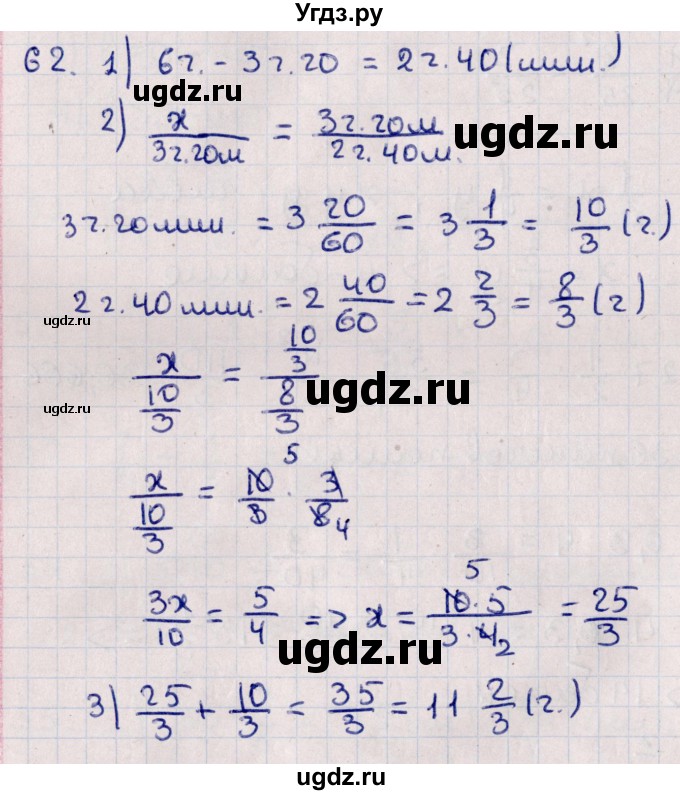 Угдз.ру
62. 1) 6ч. - 3ч.20 = 2ч.40(мин.)
ugdz.ru
2) x/3ч.20м = 3ч.20м/2ч.40м.
ugdz.ru
3ч.20мин. = 3 20/60 = 3 1/3 = 10/3 (ч.)
2ч.40мин. = 2 40/60 = 2 2/3 = 8/3 (ч)
ugdz.ru
x/(10/3) = (10/3)/(8/3)
ugdz.ru
ugdz.ru
5
x/(10/3) = 10/3 · 3/8 4
5
3x/10 = 5/4 => x = 10·5/3·4 2 = 25/3
ugdz.ru
3) 25/3 + 10/3 = 35/3 = 11 2/3 (ч.)
ugdz.ru
ugdz.ru